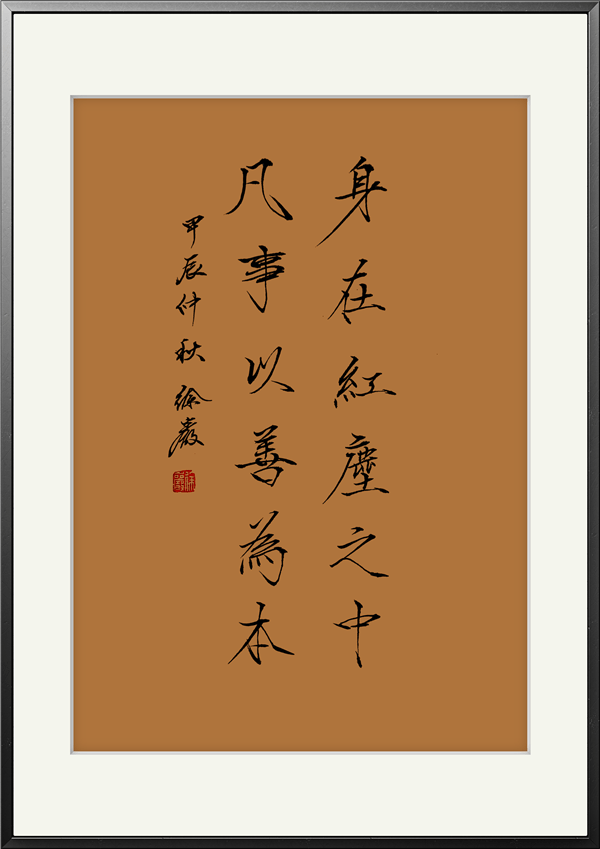 身在紅塵之中
凡事以善為本
甲辰仲秋 徐嚴